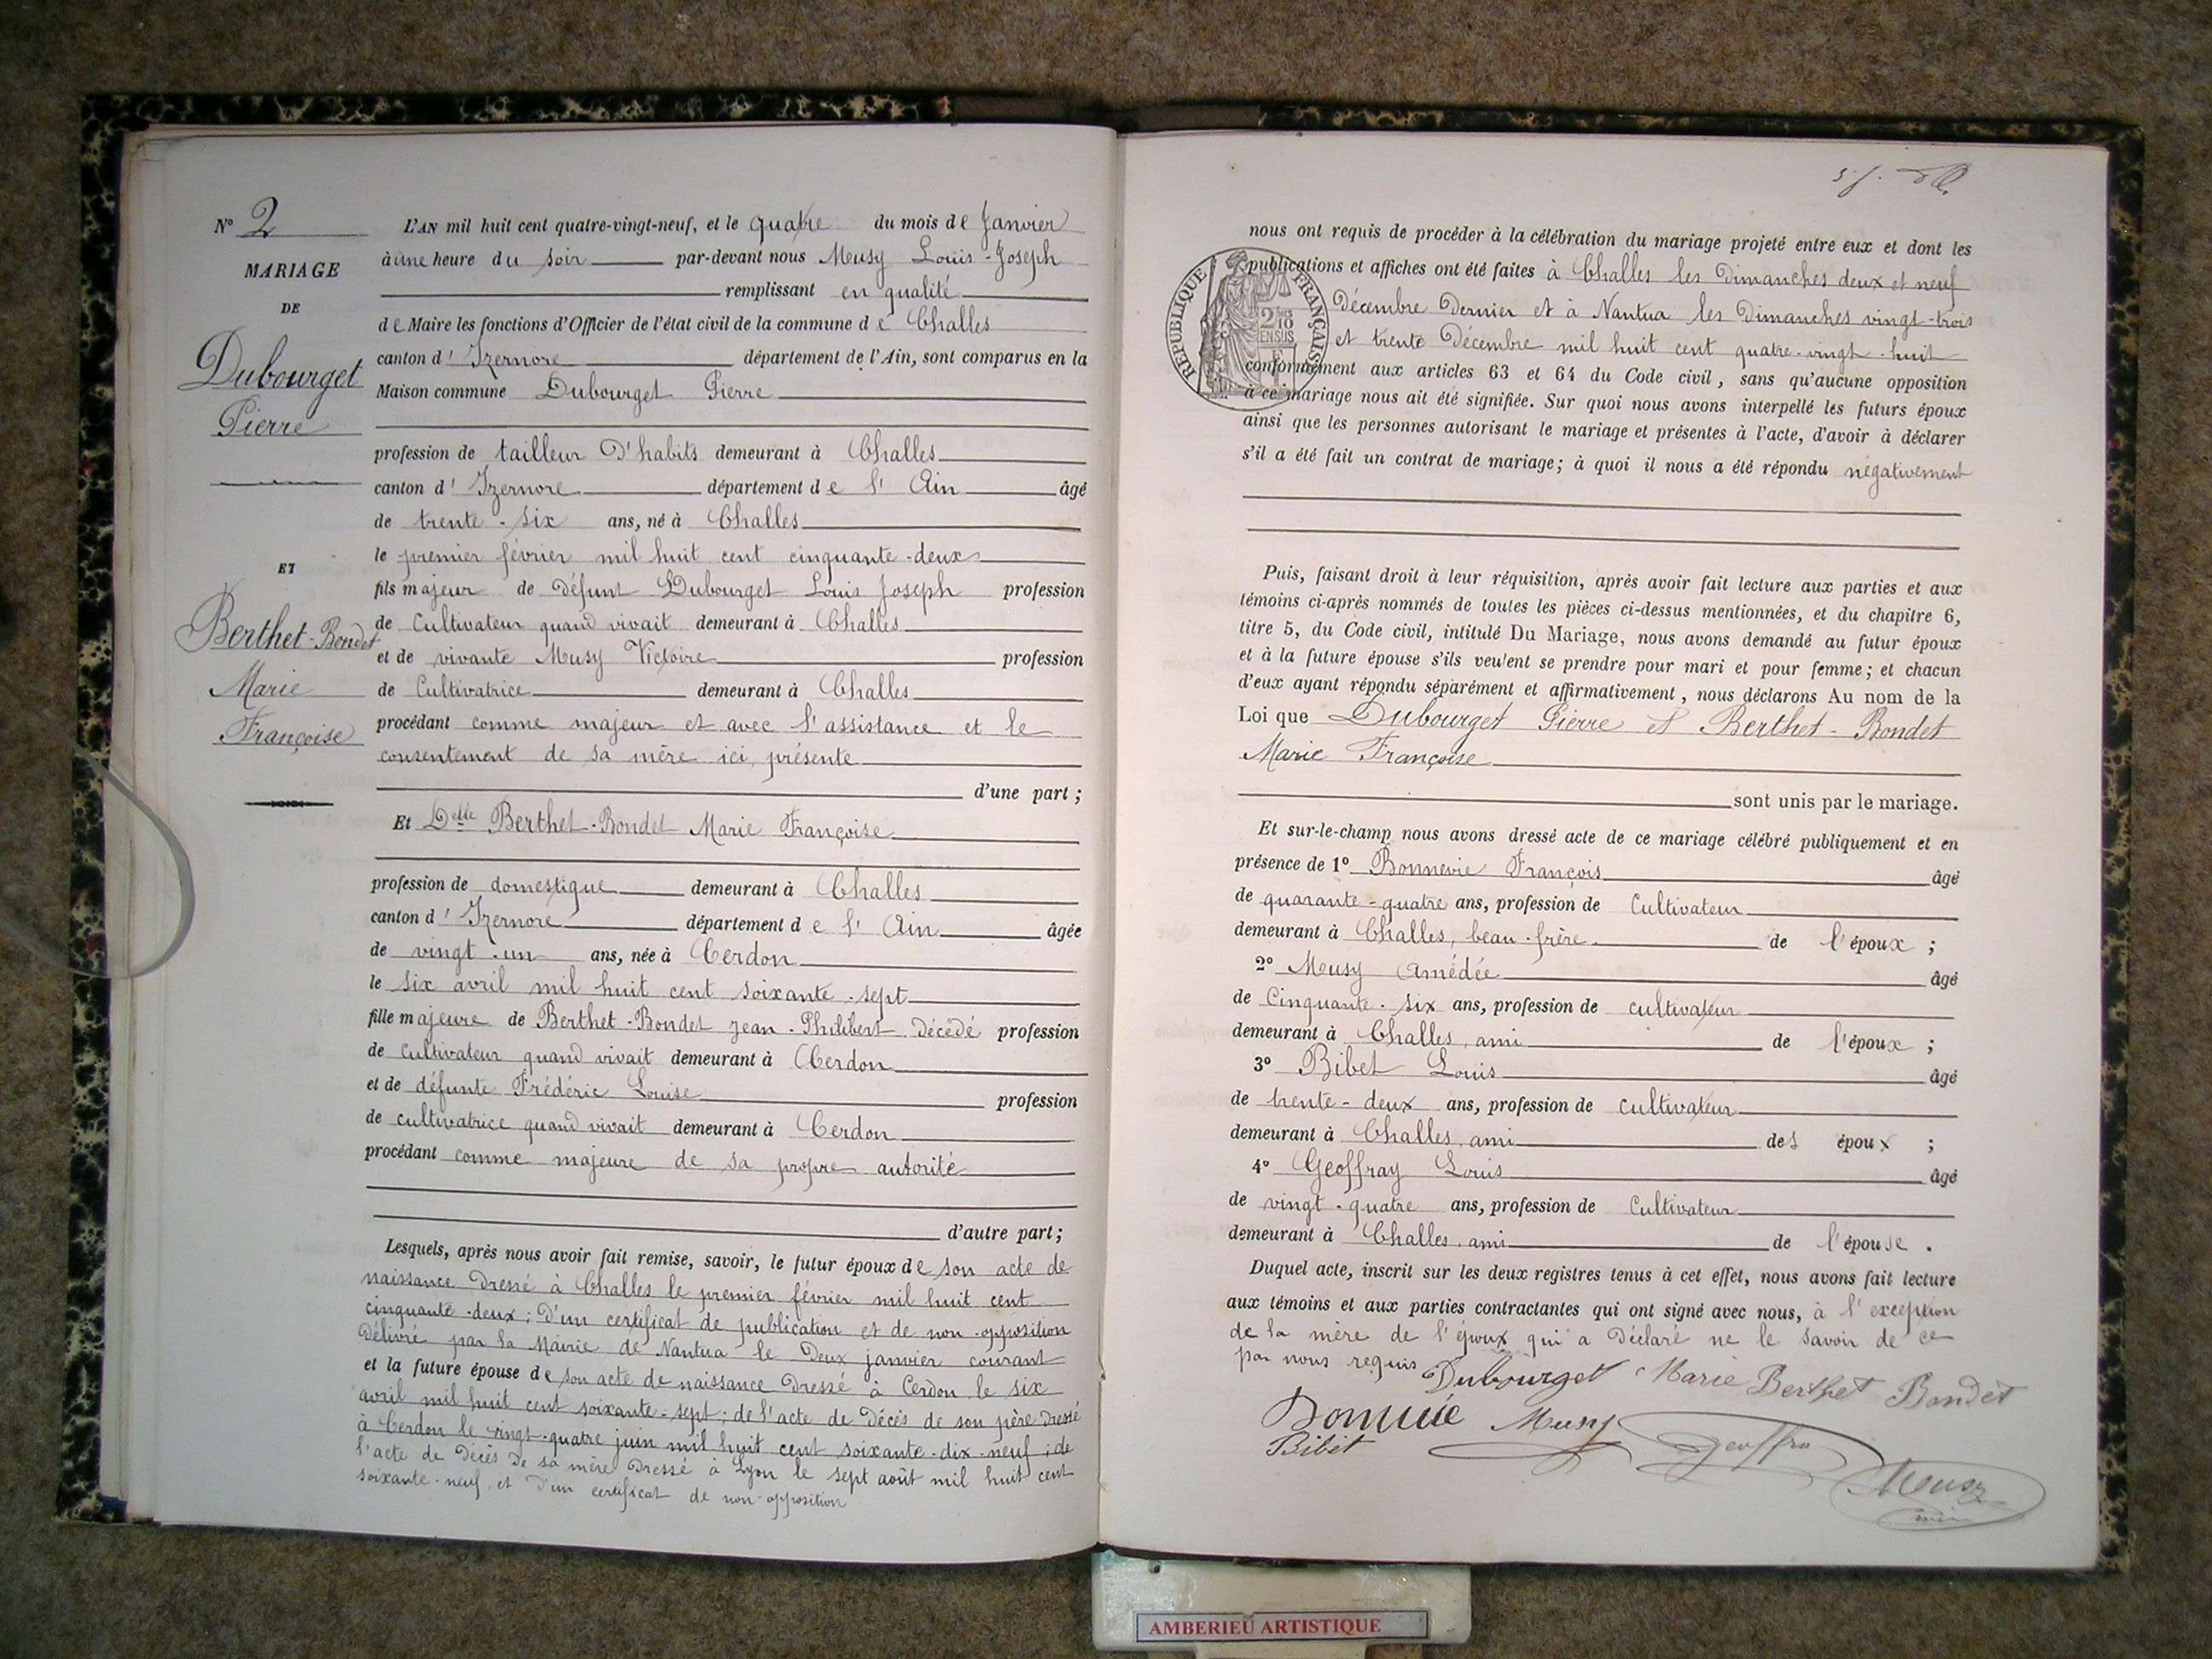 N° 2
MARIAGE
DE
Dubourget
Pierre
ET
Berthet-Bondet
Marie
Françoise
L'AN mil huit cent quatre-vingt-neuf, et le quatre du mois de Janvier
à une heure du soir par-devant nous Musy Louis-Joseph
remplissant en qualité
de Maire les fonctions d'Officier de l'état civil de la commune de Challes
canton d'Izernore département de l'Ain, sont comparus en la
Maison commune Dubourget Pierre
profession de tailleur D'habits demeurant à Challes
canton d'Izernore département de l'Ain âgé
de trente-six ans, né à Challes
le premier février mil huit cent cinquante-deux
fils majeur de Défunt Dubourget Louis Joseph profession
de Cultivateur quand vivait demeurant à Challes
et de vivante Musy Victoire profession
de Cultivatrice demeurant à Challes
procédant comme majeur et avec l'assistance et le
consentement de sa mère ici présente
d'une part ;
Et Delle Berthet-Bondet Marie Françoise
profession de domestique demeurant à Challes
canton d'Izernore département de l'Ain âgée
de vingt-un ans, née à Cerdon
le six avril mil huit cent soixante-sept
fille majeure de Berthet-Bondet Jean-Philibert Décédé profession
de cultivateur quand vivait demeurant à Cerdon
et de défunte Frédéric Louise profession
de cultivatrice quand vivait demeurant à Cerdon
procédant comme majeure de sa propre autorité
d'autre part ;
Lesquels, après nous avoir fait remise, savoir, le futur époux de son acte de
naissance Dressé à Challes le premier février mil huit cent
cinquante-deux ; D'un certificat de publication et de non-opposition
Délivré par la Mairie de Nantua le Deux janvier courant
et la future épouse de son acte de naissance Dressé à Cerdon le six
avril mil huit cent soixante-sept ; de l'acte de Décès de son père Dressé
à Cerdon le vingt-quatre juin mil huit cent soixante-dix-neuf ; de
l'acte de Décès de sa mère Dressé à Lyon le sept août mil huit cent
soixante-neuf et D'un certificat de non-opposition
nous ont requis de procéder à la célébration du mariage projeté entre eux et dont les
publications et affiches ont été faites à Challes les Dimanches deux et neuf
Décembre Dernier et à Nantua les Dimanches vingt-trois
et trente Décembre mil huit cent quatre-vingt-huit
conformément aux articles 63 et 64 du Code civil, sans qu'aucune opposition
à ce mariage nous ait été signifiée. Sur quoi nous avons interpellé les futurs époux
ainsi que les personnes autorisant le mariage et présentes à l'acte, d'avoir à déclarer
s'il a été fait un contrat de mariage ; à quoi il nous a été répondu négativement
REPUBLIQUE FRANÇAISE
Puis, faisant droit à leur réquisition, après avoir fait lecture aux parties et aux
témoins ci-après nommés de toutes les pièces ci-dessus mentionnées, et du chapitre 6,
titre 5, du Code civil, intitulé Du Mariage, nous avons demandé au futur époux
et à la future épouse s'ils veulent se prendre pour mari et pour femme ; et chacun
d'eux ayant répondu séparément et affirmativement, nous déclarons Au nom de la
Loi que Dubourget Pierre et Berthet-Bondet
Marie Françoise
sont unis par le mariage.
Et sur-le-champ nous avons dressé acte de ce mariage célébré publiquement et en
présence de 1° Bonnevie François âgé
de quarante-quatre ans, profession de Cultivateur
demeurant à Challes, beau-frère de l'époux ;
2° Musy Amédée âgé
de Cinquante-six ans, profession de cultivateur
demeurant à Challes, ami de l'époux ;
3° Bibet Louis âgé
de trente-deux ans, profession de cultivateur
demeurant à Challes, ami des époux ;
4° Geoffray Louis âgé
de vingt-quatre ans, profession de Cultivateur
demeurant à Challes, ami de l'épouse.
Duquel acte, inscrit sur les deux registres tenus à cet effet, nous avons fait lecture
aux témoins et aux parties contractantes qui ont signé avec nous, à l'exception
de la mère de l'époux qui a Déclaré ne le savoir de ce
par nous requis
Dubourget Marie Berthet Bondet
Musy
Bibet
AMBERIEU ARTISTIQUE